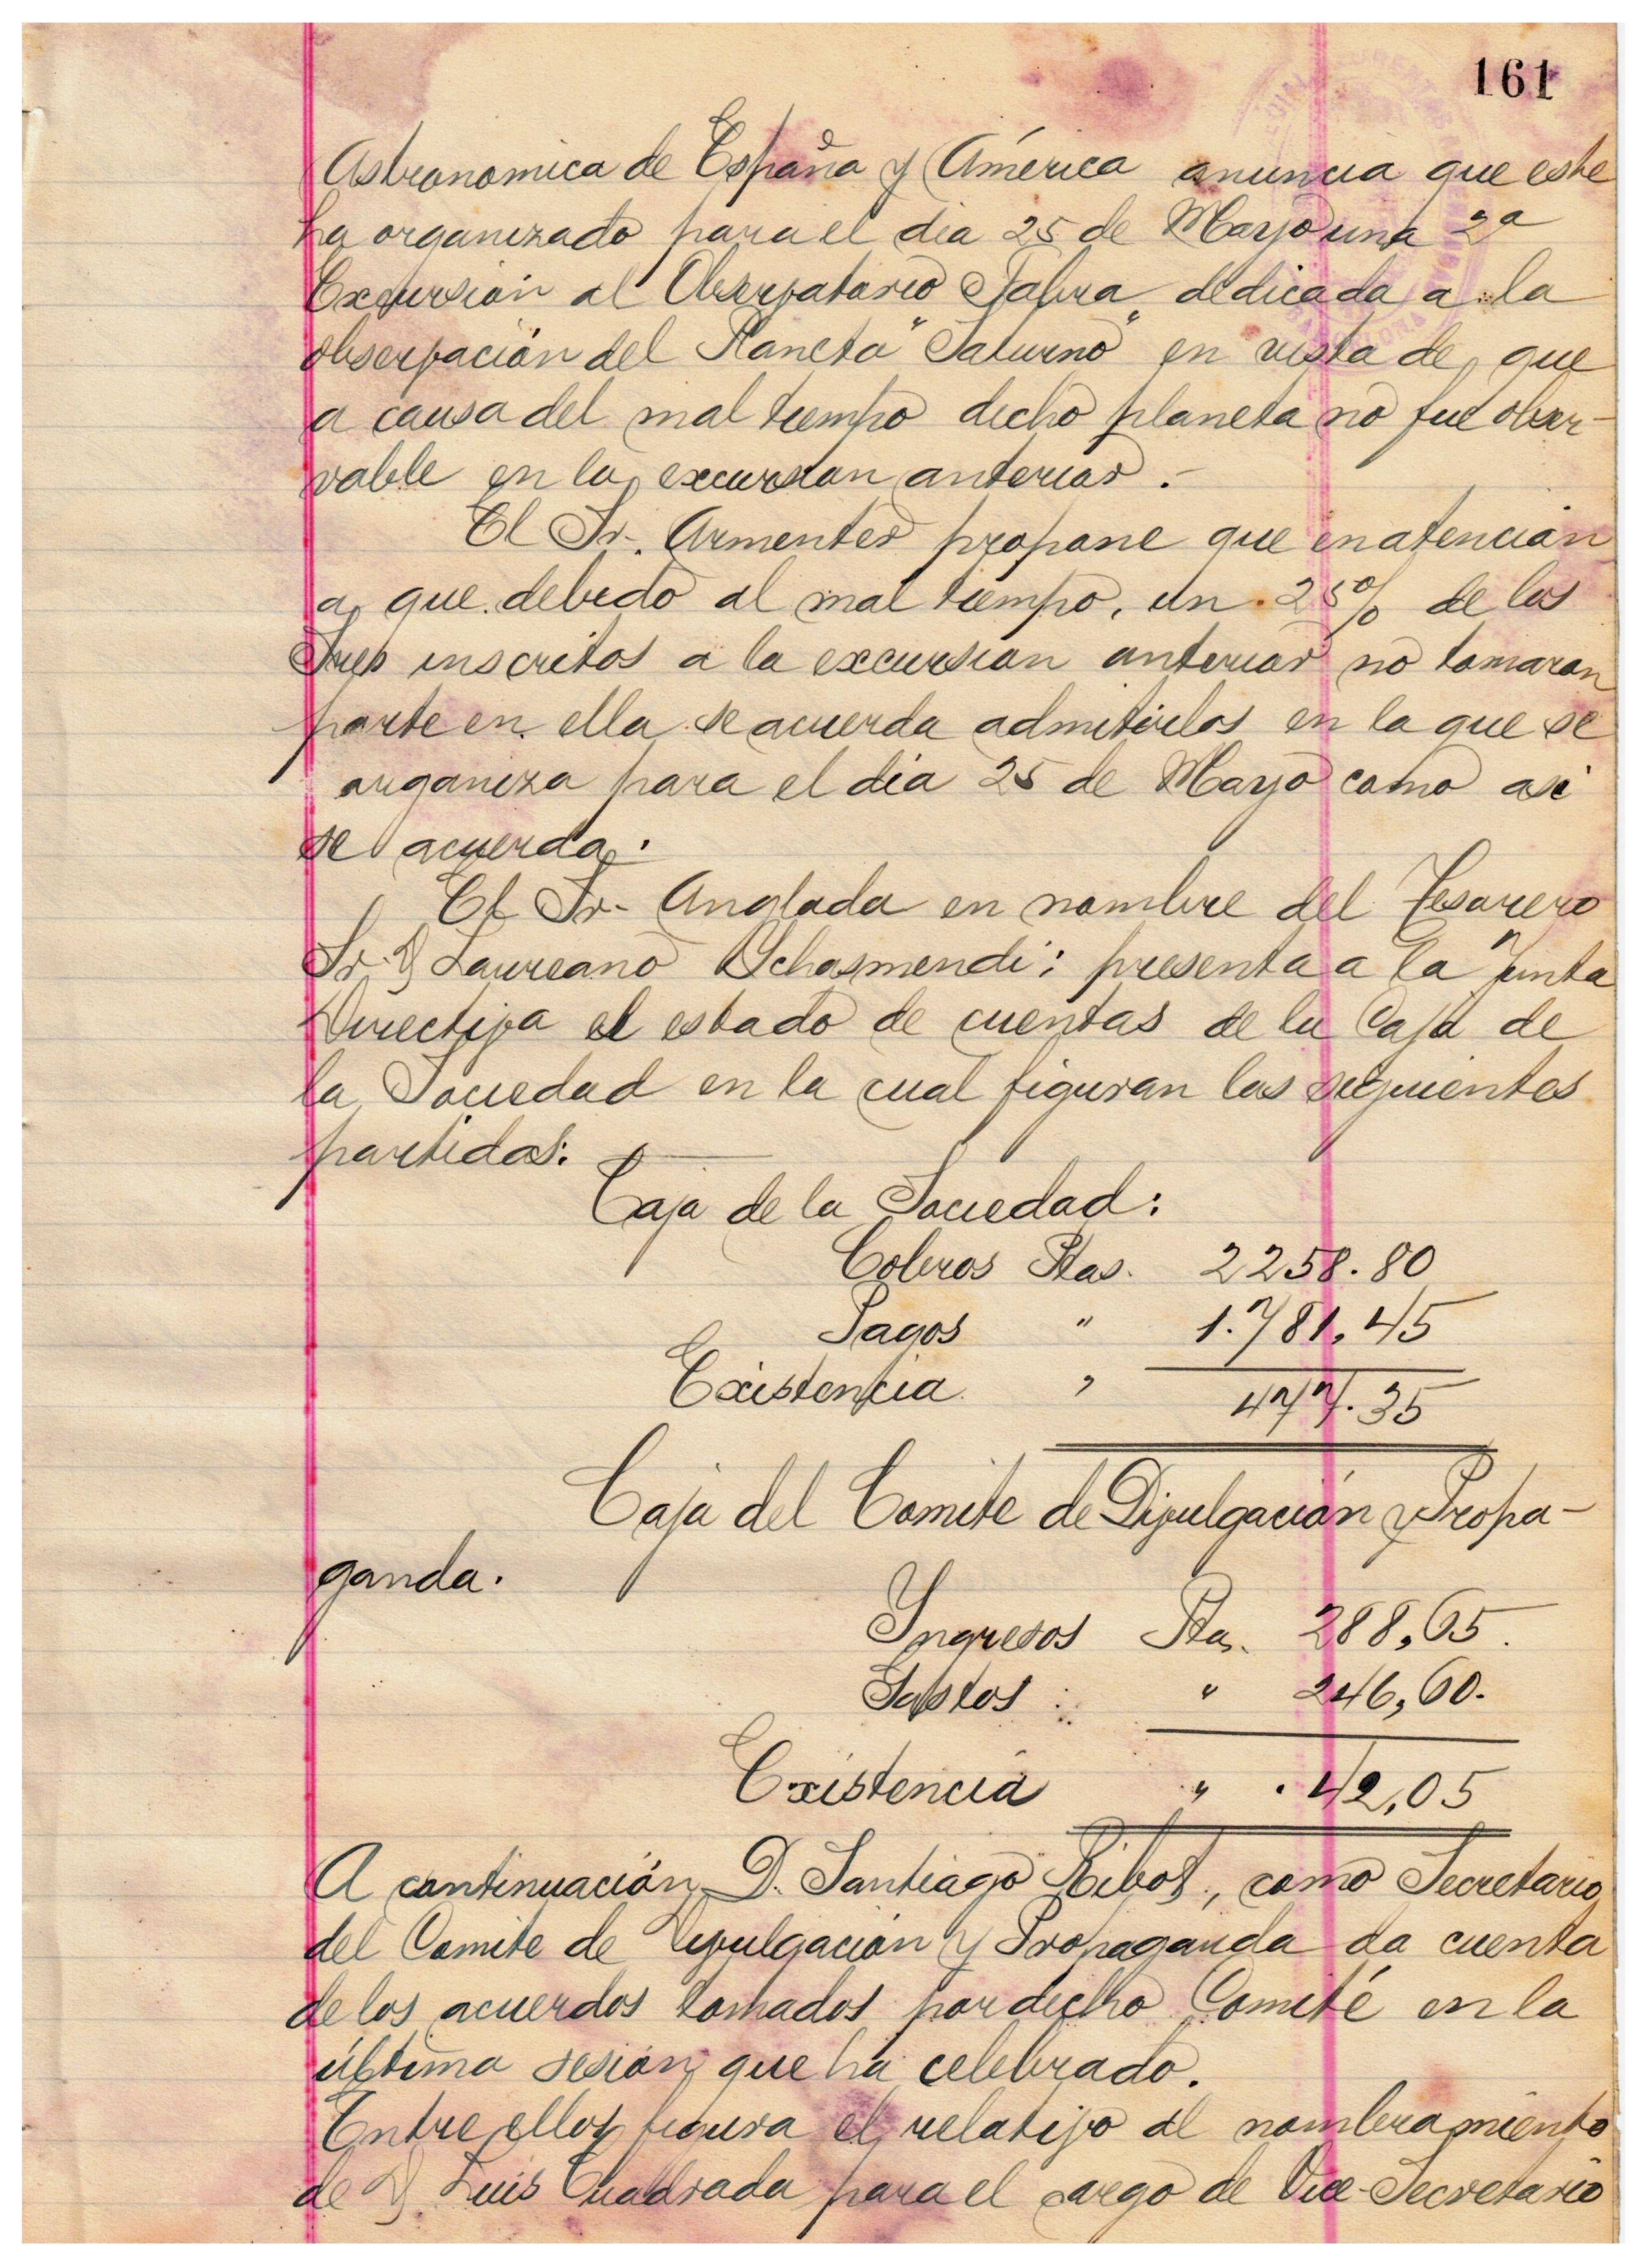 161
Astronomica de España y América anuncia que este
ha organizado para el dia 25 de Mayo una 2ª
Excursión al Observatorio Fabra dedicada a la
observación del Planeta "Saturno" en vista de que
a causa del mal tiempo dicho planeta no fue obser-
vable en la excursion anterior.-
El Sr. Armenter propone que en atencion
a que debido al mal tiempo, un 25% de los
Sres inscritos a la excursion anterior no tomaron
parte en ella se acuerda admitirlos en la que se
organiza para el dia 25 de Mayo como asi
se acuerda.
El Sr- Anglada en nombre del Tesorero
Sr. D Laureano Ychasmendi: presenta a la Junta
Directiva el estado de cuentas de la Caja de
la Sociedad en la cual figuran las siguientes
partidas:
Caja de la Sociedad:
Cobros Ptas. 2258.80
Pagos " 1.781,45
Existencia " 477.35
Caja del Comite de Divulgación y Propa-
ganda.
Ingresos Ptas. 288,65.
Gastos : " 246,60.
Existencia " 42,05
A continuación D. Santiago Ribot, como Secretario
del Comite de Divulgacion y Propaganda da cuenta
de los acuerdos tomados por dicho Comité en la
última sesión que ha celebrado.
Entre ellos figura el relativo al nombramiento
de D Luis Cuadrada para el cargo de Vice-Secretario